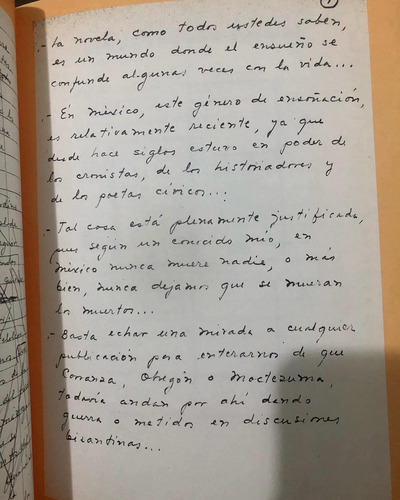 1
.- La novela, como todos ustedes saben,
es un mundo donde el ensueño se
confunde algunas veces con la vida...
.- En méxico, este género de ensoñación,
es relativamente reciente, ya que
desde hace siglos estuvo en poder de
los cronistas, de los historiadores y
de los poetas cívicos...
.- Tal cosa está plenamente justificada,
pues según un conocido mío, en
méxico nunca muere nadie, o más
bien, nunca dejamos que se mueran
los muertos...
.- Basta echar una mirada a cualquier
publicación para enterarnos de que
Carranza, Obregón o Moctezuma,
todavía andan por ahí dando
guerra o metidos en discusiones
bizantinas...